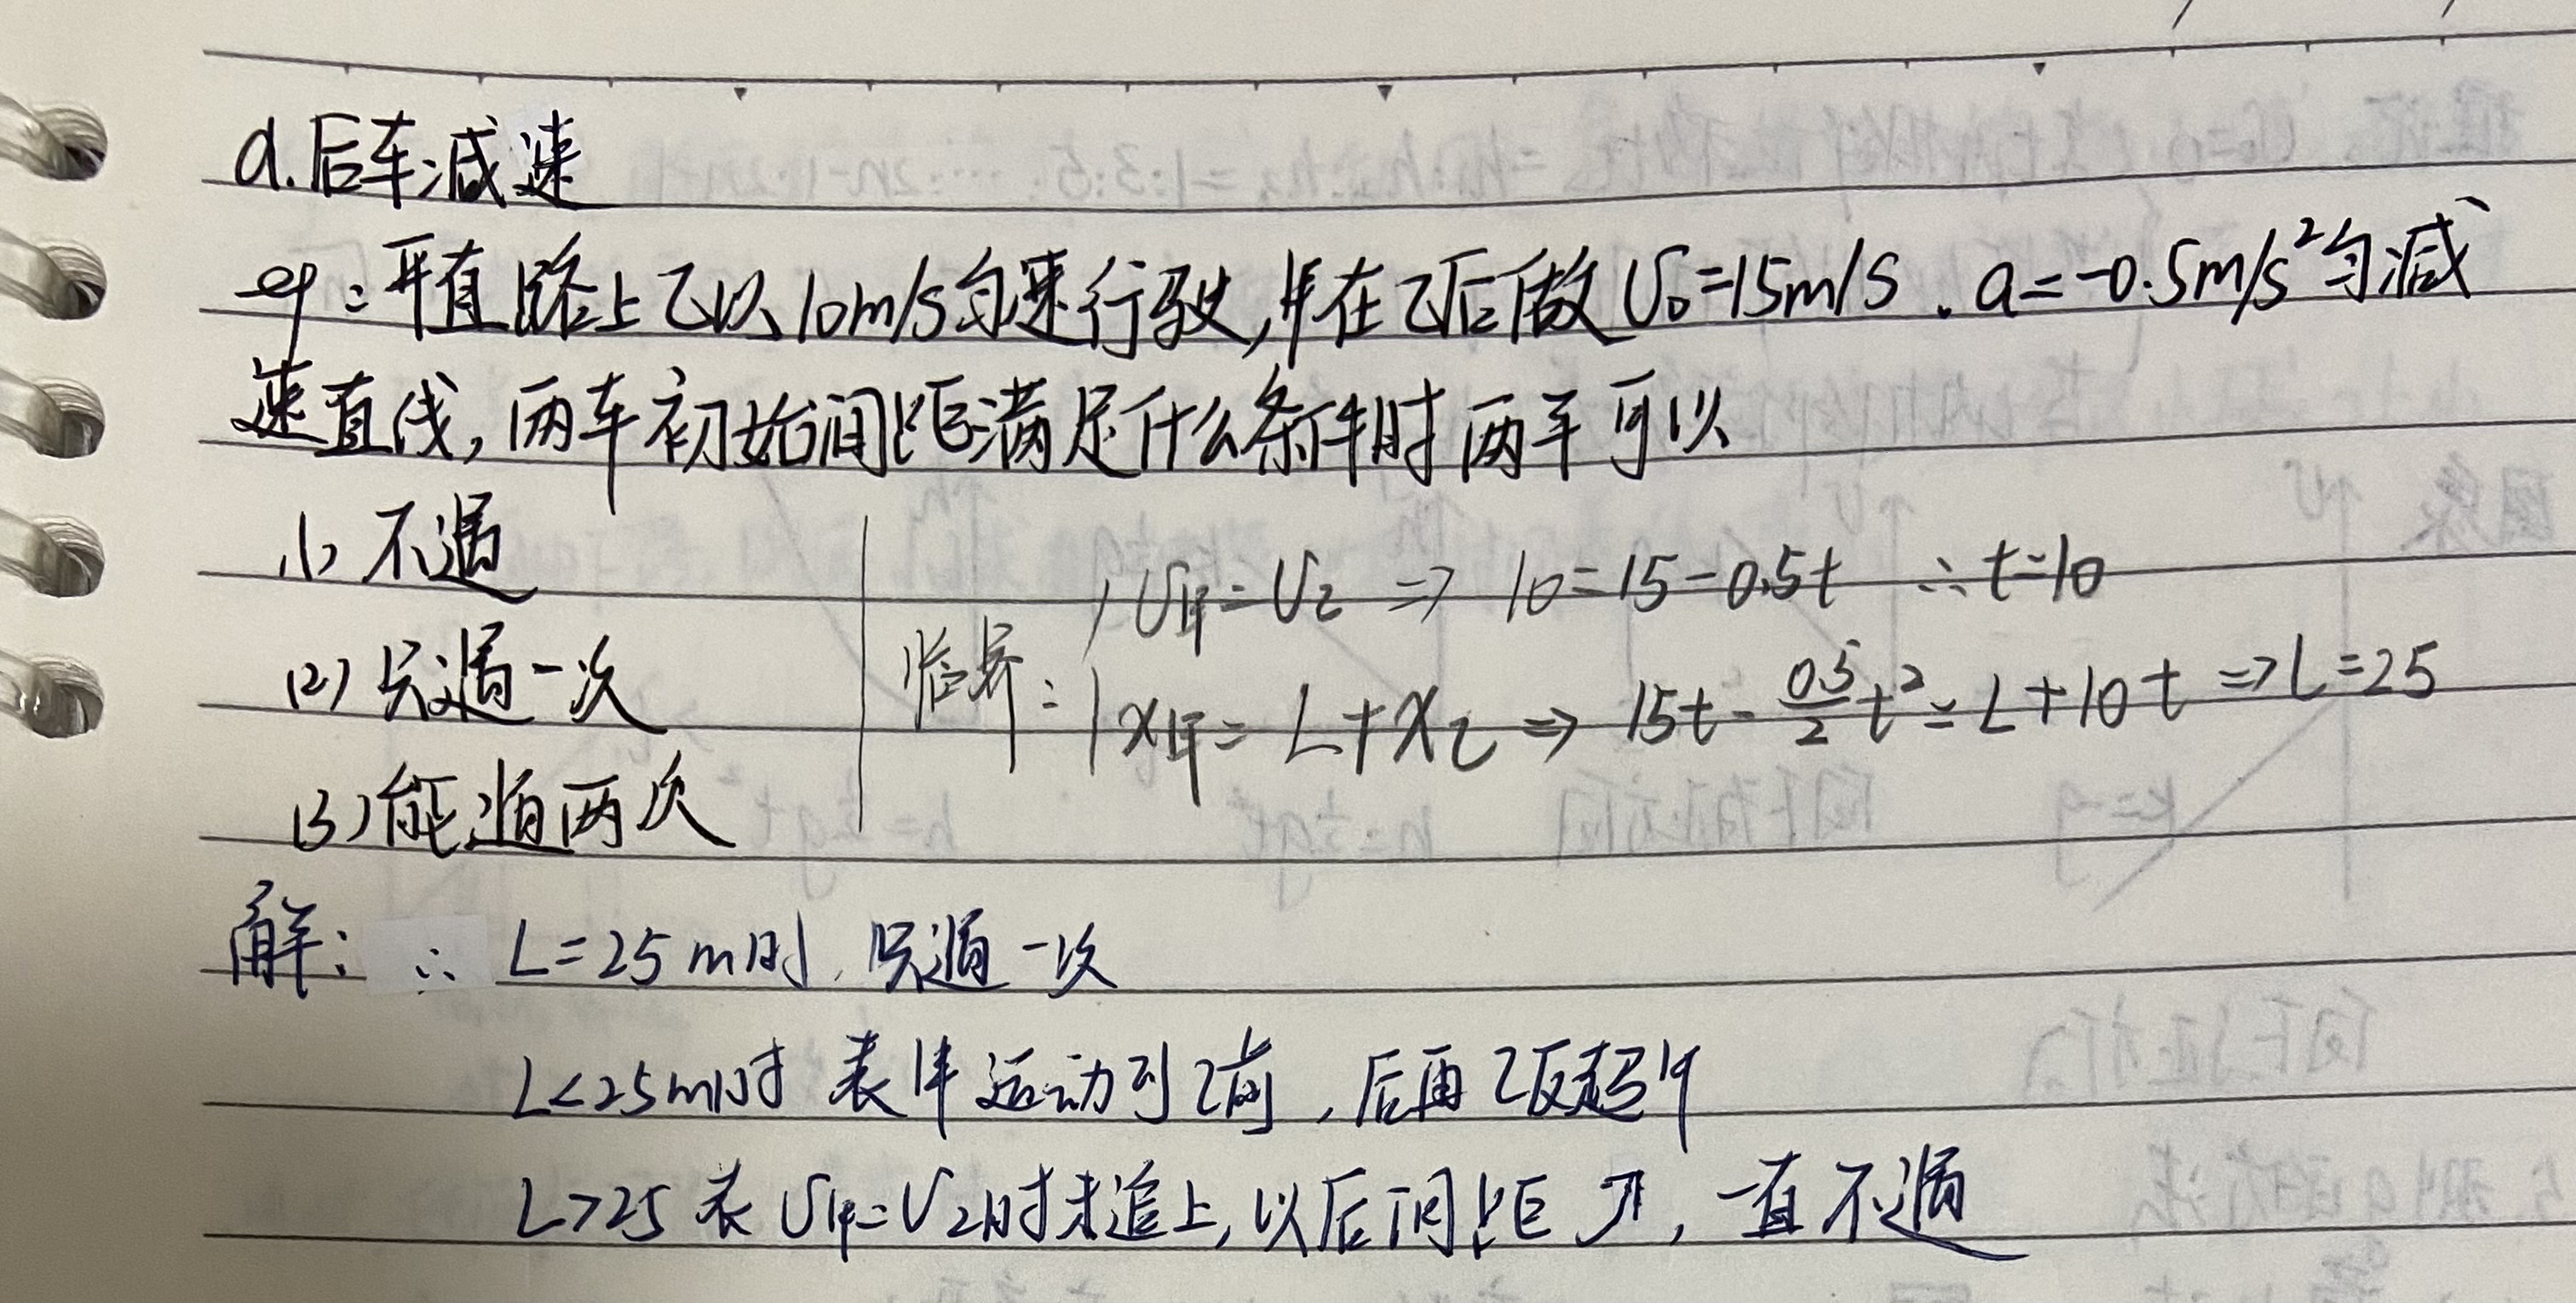 d.后车减速
eg:平直路上乙以10m/s匀速行驶,甲在乙后做v₀=15m/s.a=-0.5m/s²匀减
速直线,两车初始间距满足什么条件时两车可以
(1)不遇
(2)只遇一次
(3)能遇两次
临界:
v甲=v乙 ⇒ 10=15-0.5t ∴t=10
x甲=L+x乙 ⇒ 15t-\frac{0.5}{2}t²=L+10t ⇒L=25
解: ∴ L=25m时,只遇一次
L<25m时 表甲运动到乙前,后再乙反超甲
L>25 表v甲=v乙时未追上,以后间距↗,一直不遇